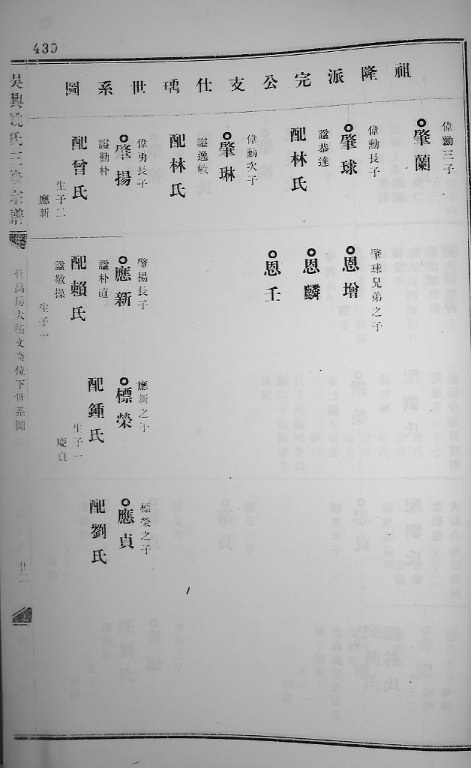 430
祖隆派完公支仕瑀世系圖
偉勳三子
肇蘭
偉勳長子
肇球
諡恭達
配林氏
偉勳次子
肇琳
諡逸敏
配林氏
偉勇長子
肇揚
諡勤朴
配曾氏
生子二
應新
肇球兄弟之子
恩增
恩麟
恩壬
肇揚長子
應新
諡朴直
配賴氏
諡敬操
生子一
應新之子
標榮
配鍾氏
生子一
慶貞
標榮之子
應貞
配劉氏
吳興
氏
宗譜